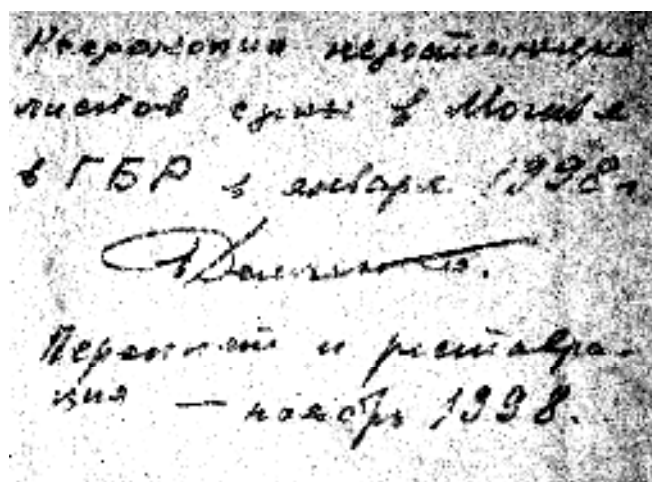 Ксерокопии недостающих
листов сделаны в Москве
в ГБР в январе 1998 г.
Переплёт и реставра-
ция — ноябрь 1998.